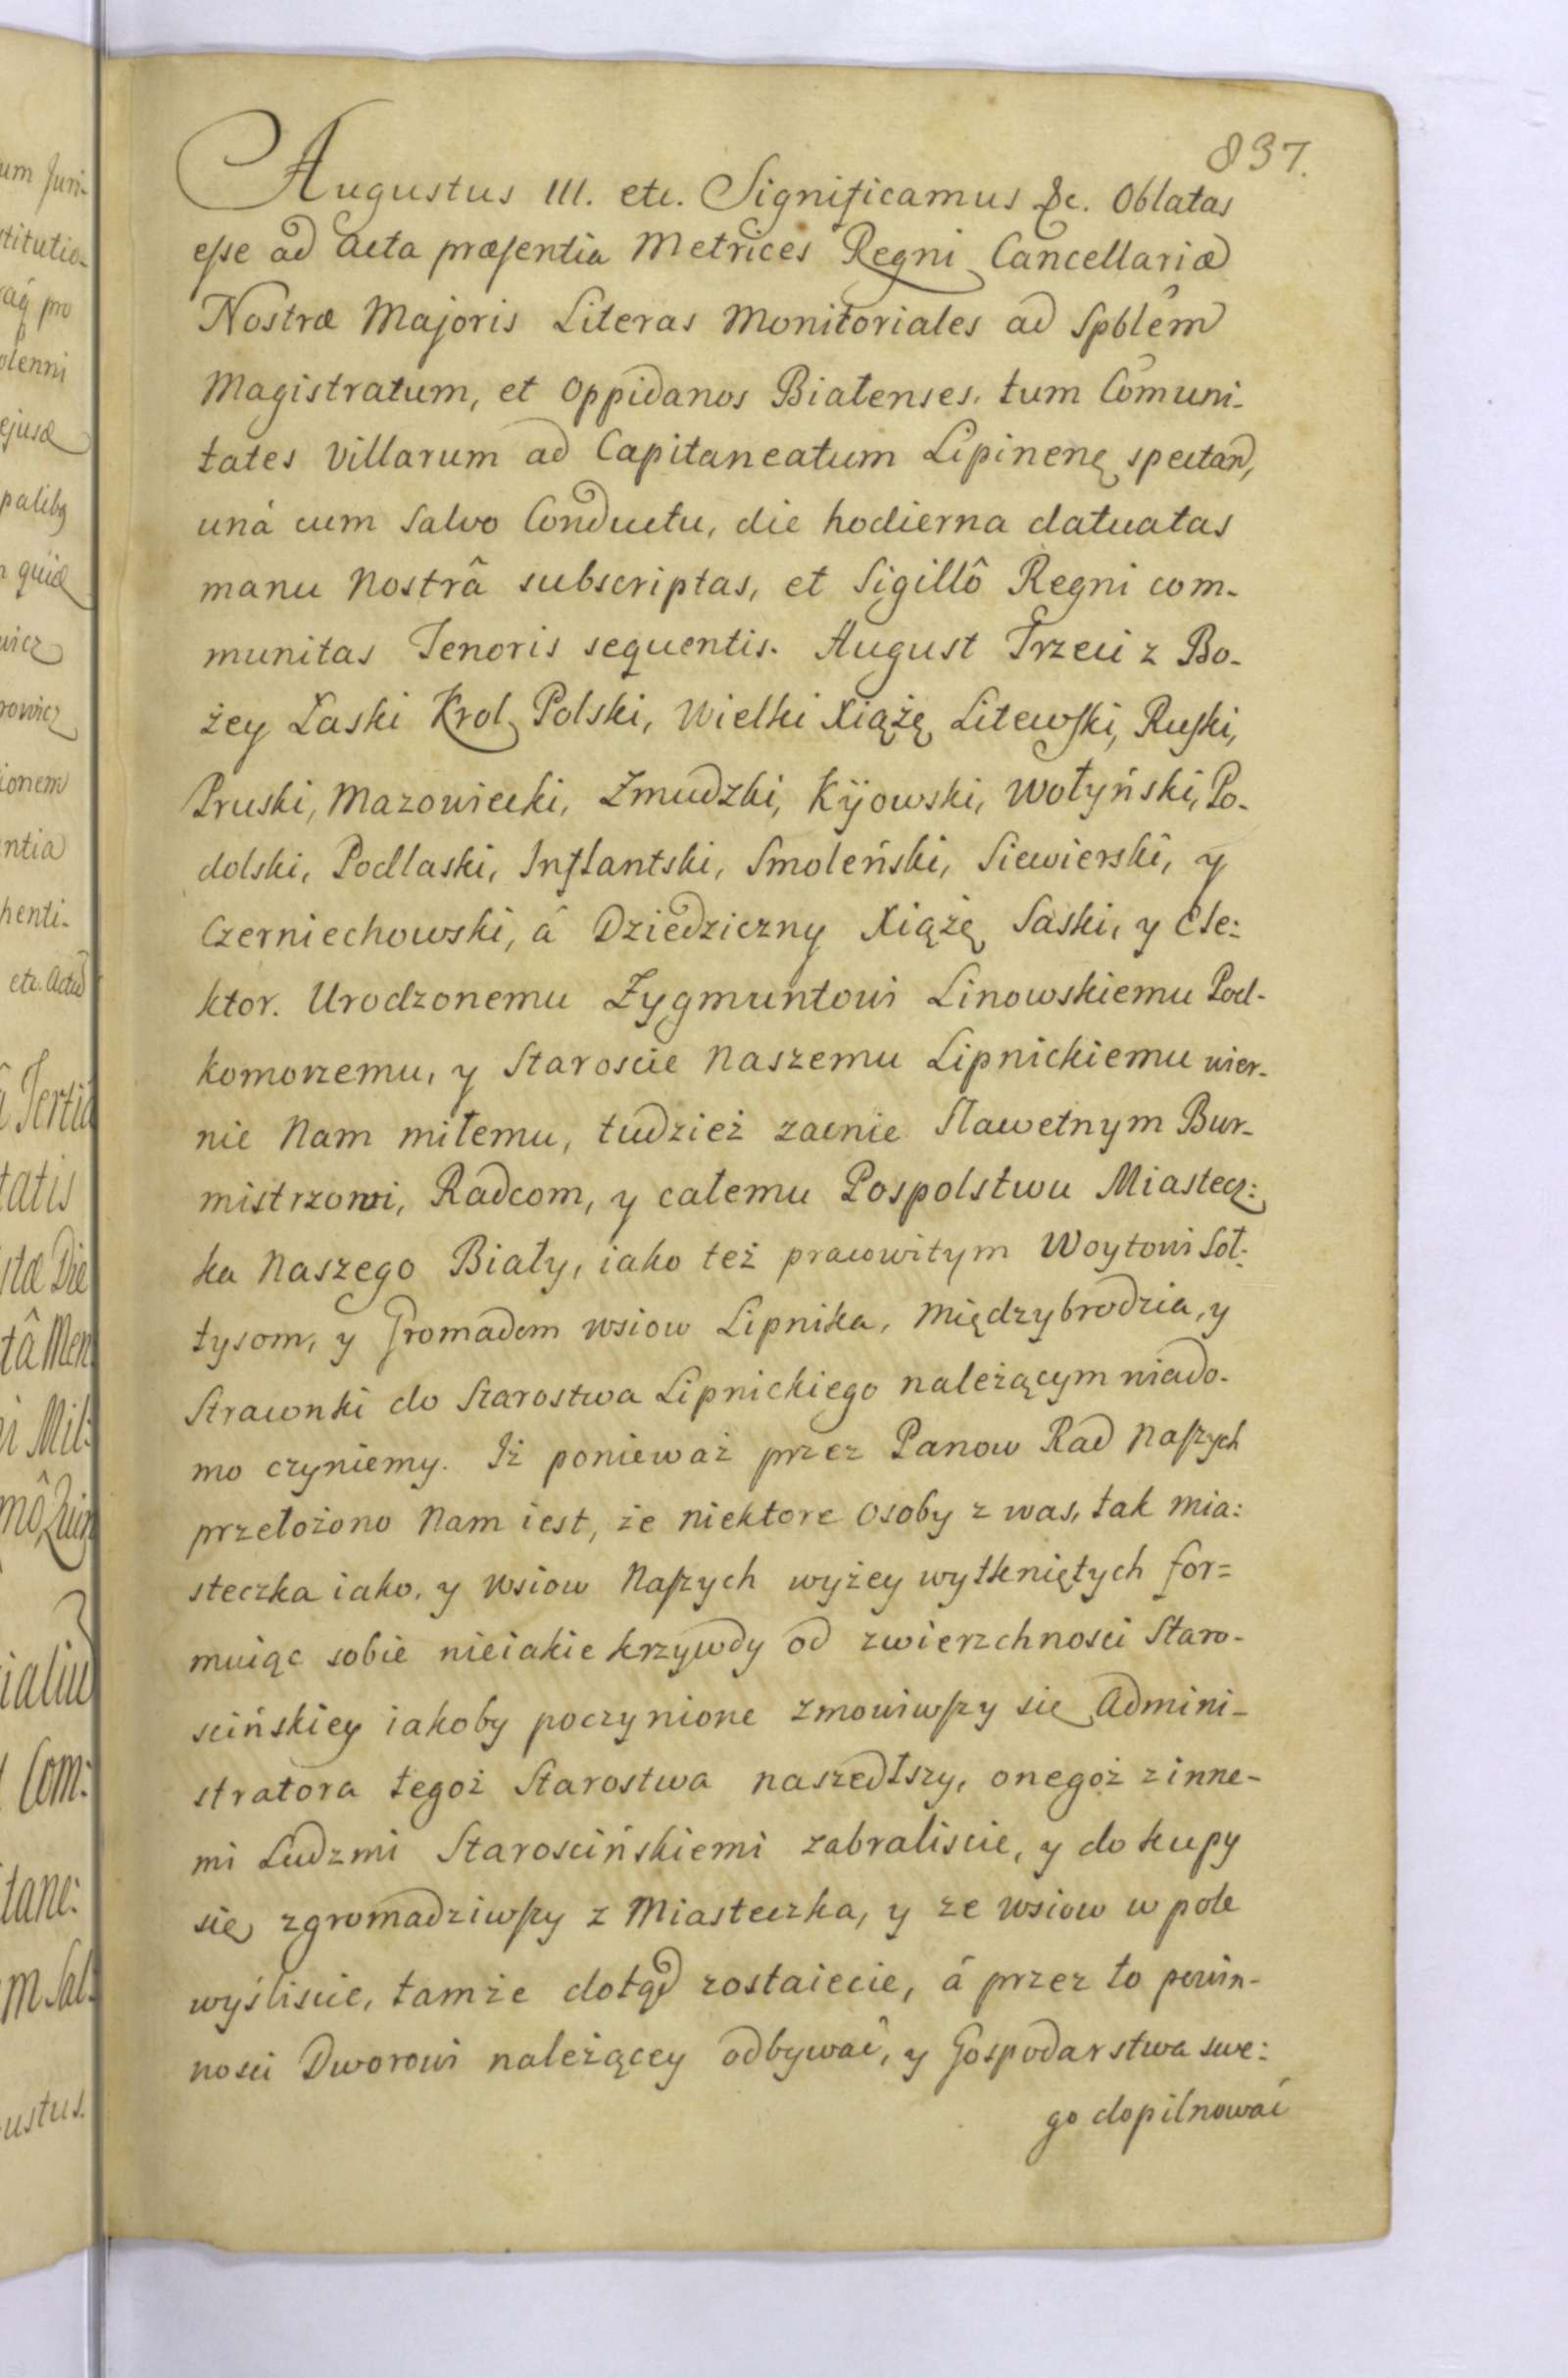 837.
Augustus III. etc. Significamus &c. Oblatas
esse ad Acta præsentia Metrices Regni Cancellariæ
Nostræ Majoris Literas Monitoriales ad Spblêm
Magistratum, et Oppidanos Bialenses, tum Comuni-
tates Villarum ad Capitaneatum Lipinenę spectan,
unà cum Salvo Conductu, die hodierna datuatas
manu Nostrâ subscriptas, et Sigillô Regni com-
munitas Tenoris sequentis. August Trzeci z Bo-
żey Łaski Krol Polski, Wielki Xiążę Litewski, Ruski,
Pruski, Mazowiecki, Zmudzki, Kÿowski, Wołyński, Po-
dolski, Podlaski, Inflantski, Smoleński, Siewierski, y
Czerniechowski, á Dziedziczny Xiążę Saski, y Ele:
ktor. Urodzonemu Zygmuntowi Linowskiemu Pod-
komorzemu, y Staroscie Naszemu Lipnickiemu wier-
nie Nam miłemu, tudzież zacnie Sławetnym Bur-
mistrzowi, Radcom, y całemu Pospolstwu Miastecz:
ka Naszego Biały, iako też pracowitym Woytowi Soł:
tysom, y Gromadom wsiow Lipnika, Międzybrodzia, y
Strawnki do Starostwa Lipnickiego należącym wiado-
mo czyniemy. Iż ponieważ przez Panow Rad Naszych
przełożono Nam iest, że niektore Osoby z was, tak mia:
steczka iako, y wsiow Naszych wyżey wytkniętych for=
muiąc sobie nieiakie krzywdy od zwierzchnosci Staro-
scińskiey iakoby poczynione zmowiwszy się Admini-
stratora tegoż Starostwa naszedłszy, onegoż z inne-
mi Ludzmi Starościńskiemi zabraliscie, y do kupy
się zgromadziwszy z Miasteczka, y ze wsiow w pole
wyśliscie, tamże dotąd zostaiecie, á przez to powin-
nosci Dworowi należącey odbywać, y Gospodarstwa swe:
go dopilnować